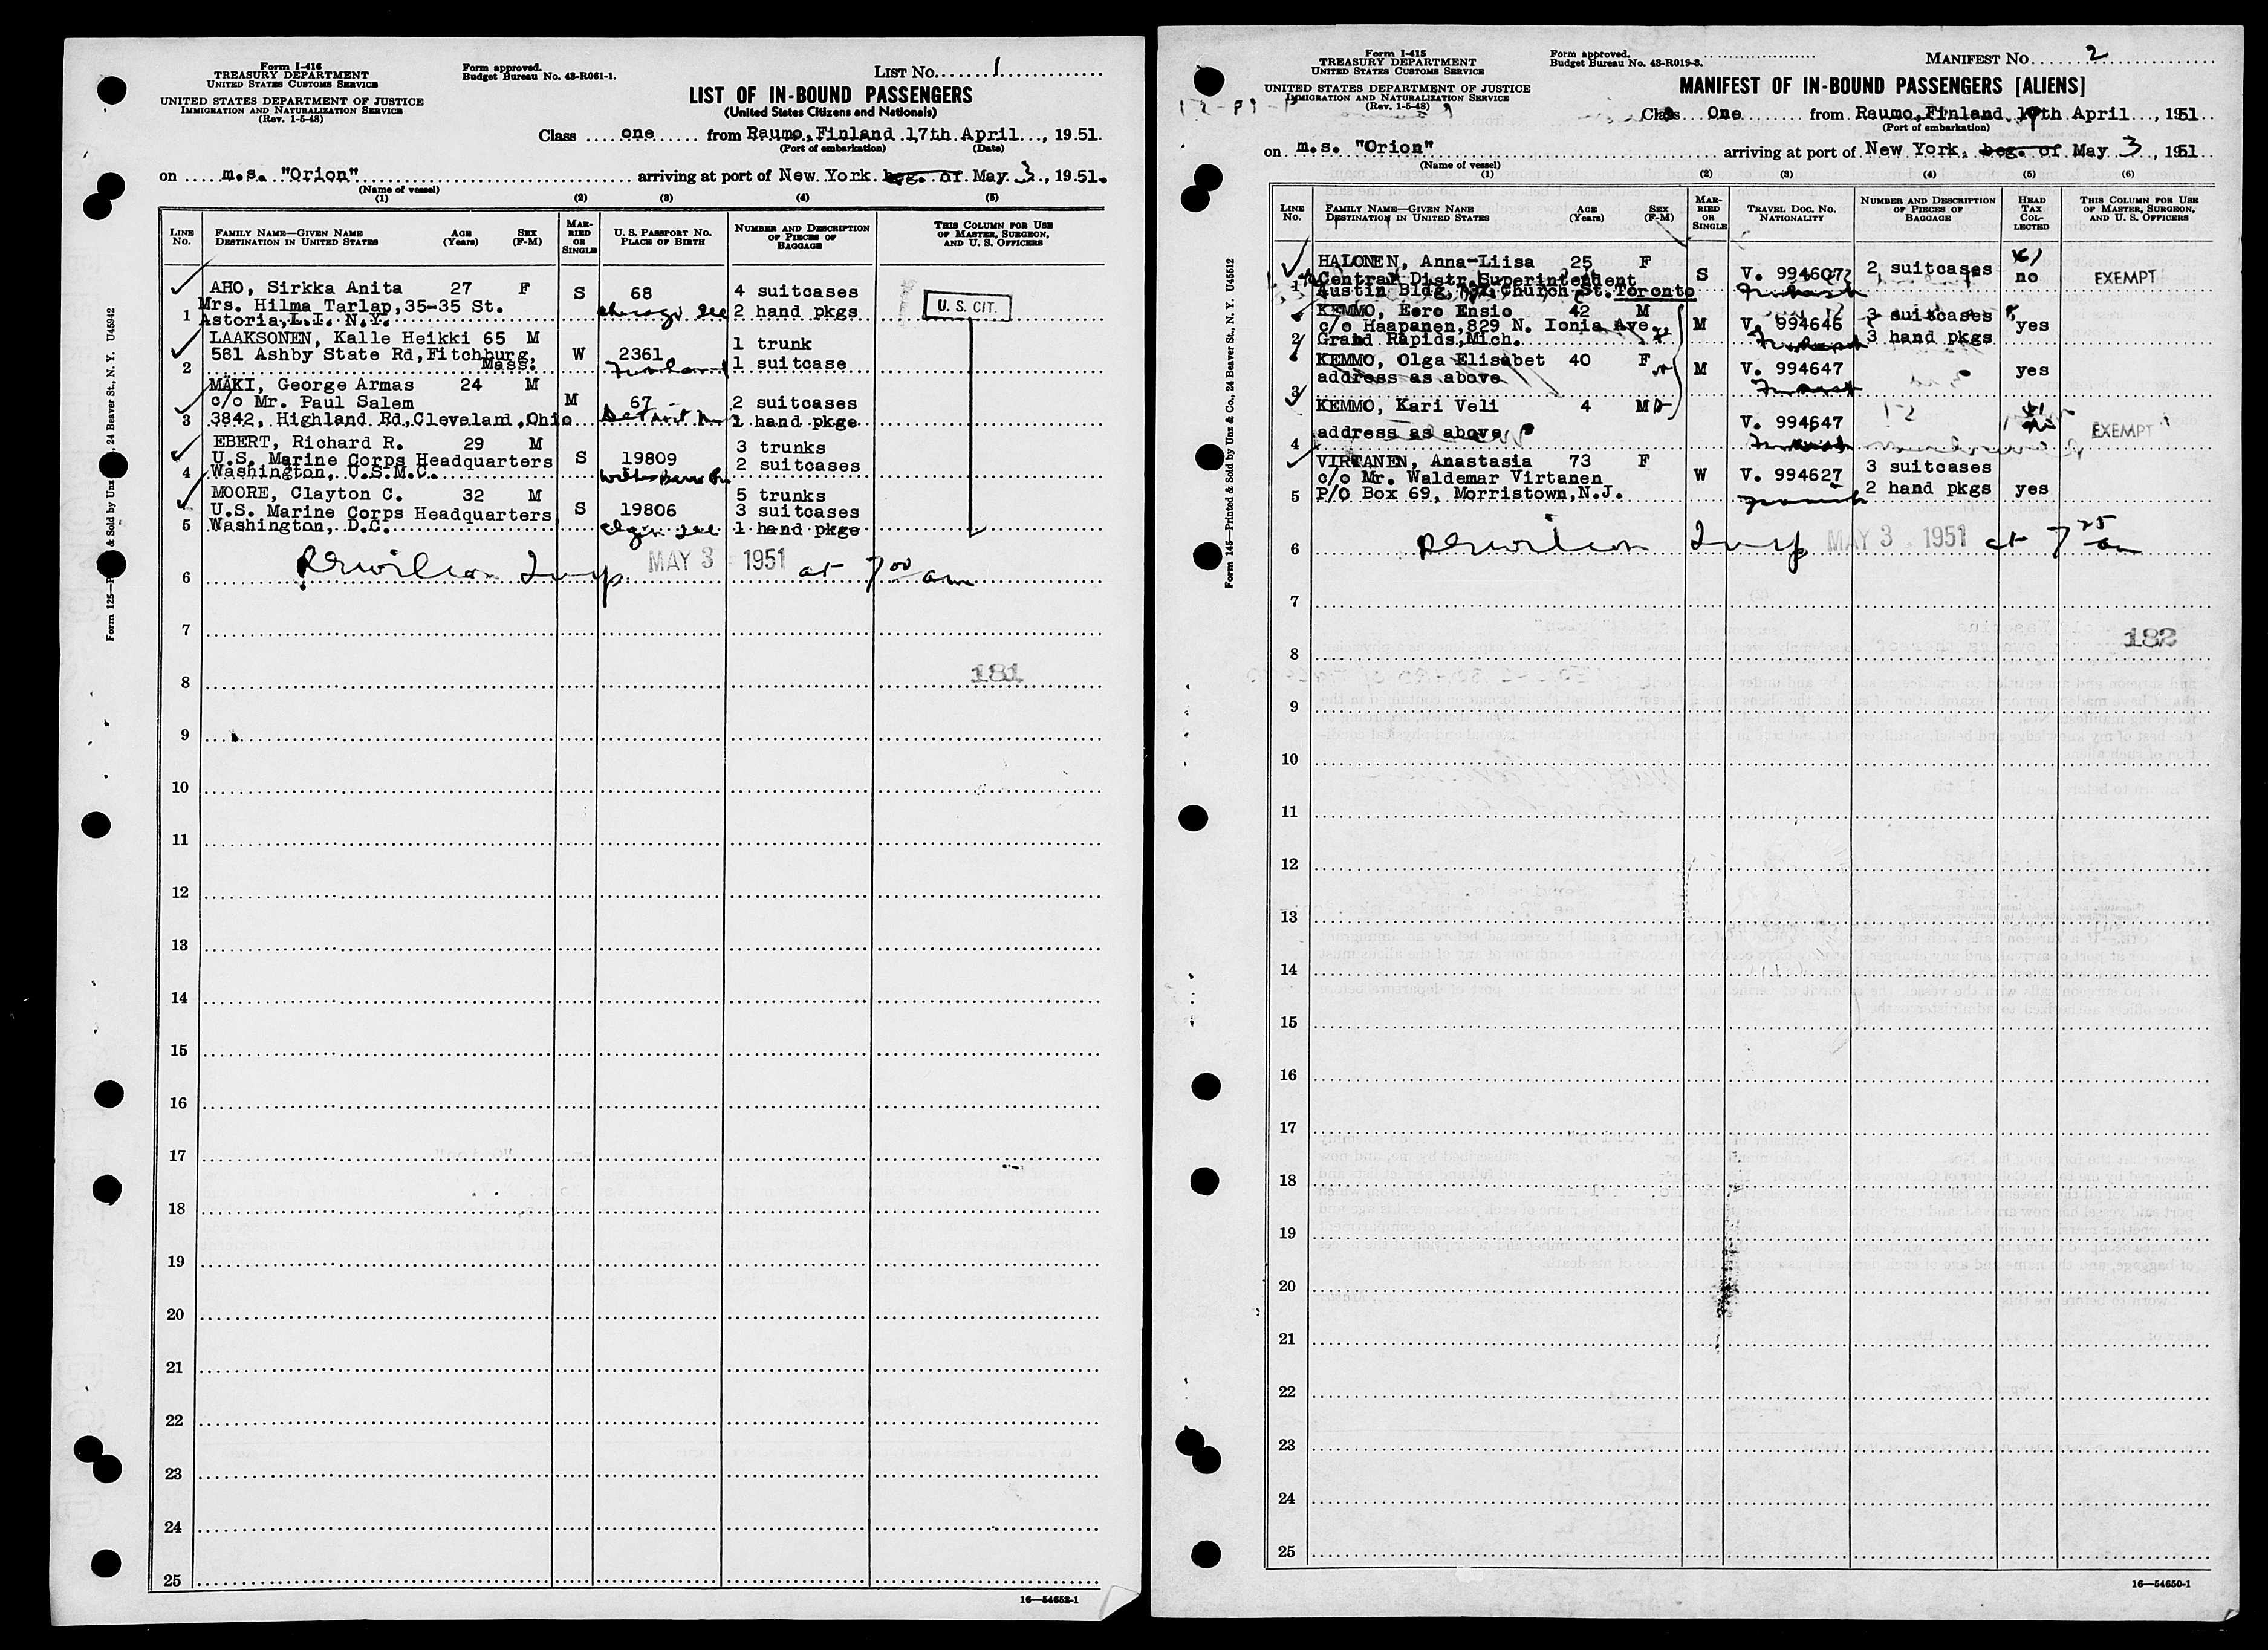 Form I-416
TREASURY DEPARTMENT
UNITED STATES CUSTOMS SERVICE
UNITED STATES DEPARTMENT OF JUSTICE
IMMIGRATION AND NATURALIZATION SERVICE
(Rev. 1-5-48)
Form approved.
Budget Bureau No. 43-R061-1.
LIST No. 1
LIST OF IN-BOUND PASSENGERS
(United States Citizens and Nationals)
Class one from Raumo, Finland 17th April, 1951.
(Port of embarkation) (Date)
on m.s. "Orion" arriving at port of New York beg. of May 3, 1951.
(Name of vessel)
(1) (2) (3) (4) (5)
LINE No. FAMILY NAME—GIVEN NAME DESTINATION IN UNITED STATES AGE (Years) SEX (F-M) MARRIED OR SINGLE U. S. PASSPORT NO. PLACE OF BIRTH NUMBER AND DESCRIPTION OF PIECES OF BAGGAGE THIS COLUMN FOR USE OF MASTER, SURGEON, AND U. S. OFFICERS
AHO, Sirkka Anita 27 F S 68 4 suitcases
1 Mrs. Hilma Tarlap, 35-35 St. Chicago Ill 2 hand pkgs U. S. CIT.
Astoria, L.I. N.Y.
LAAKSONEN, Kalle Heikki 65 M 1 trunk
2 581 Ashby State Rd, Fitchburg, W 2361 Finland 1 suitcase
Mass.
MÄKI, George Armas 24 M
c/o Mr. Paul Salem M 67 2 suitcases
3 3842, Highland Rd, Cleveland, Ohio Detroit 1 hand pkge
EBERT, Richard R. 29 M 3 trunks
U.S. Marine Corps Headquarters S 19809 2 suitcases
4 Washington, U.S.M.C.
MOORE, Clayton C. 32 M 5 trunks
U.S. Marine Corps Headquarters, S 19806 3 suitcases
5 Washington, D.C. Elgin Ill 1 hand pkge
6 MAY 3 1951 at 7 00 am
7
8 181
9
10
11
12
13
14
15
16
17
18
19
20
21
22
23
24
25
16—54652-1
Form I-415
TREASURY DEPARTMENT
UNITED STATES CUSTOMS SERVICE
UNITED STATES DEPARTMENT OF JUSTICE
IMMIGRATION AND NATURALIZATION SERVICE
(Rev. 1-5-48)
Form approved.
Budget Bureau No. 43-R019-3.
MANIFEST No. 2
MANIFEST OF IN-BOUND PASSENGERS [ALIENS]
Class One from Raumo, Finland 17th April, 1951
(Port of embarkation)
on m.s. "Orion" arriving at port of New York, beg. of May 3, 1951
(Name of vessel)
(1) (2) (3) (4) (5) (6)
LINE No. FAMILY NAME—GIVEN NAME DESTINATION IN UNITED STATES AGE (Years) SEX (F-M) MARRIED OR SINGLE TRAVEL DOC. NO. NATIONALITY NUMBER AND DESCRIPTION OF PIECES OF BAGGAGE HEAD TAX COLLECTED THIS COLUMN FOR USE OF MASTER, SURGEON, AND U. S. OFFICERS
HALONEN, Anna-Liisa 25 F
Central Distr. Superintendent S V. 994607 2 suitcases no EXEMPT
1 Austin Bldg, Church St. Toronto Finnish
KEMMO, Eero Ensio 42 M 3 suitcases
c/o Haapanen, 829 N. Ionia Ave M V. 994646 yes
2 Grand Rapids, Mich. Finnish 3 hand pkgs
KEMMO, Olga Elisabet 40 F
address as above M V. 994647 yes
3 Finnish
KEMMO, Kari Veli 4 M
V. 994647
4 address as above Finnish EXEMPT
VIRTANEN, Anastasia 73 F 3 suitcases
c/o Mr. Waldemar Virtanen W V. 994627
5 P/O Box 69, Morristown, N.J. Finnish 2 hand pkgs yes
6 MAY 3 1951 at 7 25 am
7
8 182
9
10
11
12
13
14
15
16
17
18
19
20
21
22
23
24
25
16—54650-1
Form 145—Printed & Sold by Unz & Co., 24 Beaver St., N. Y. U45512